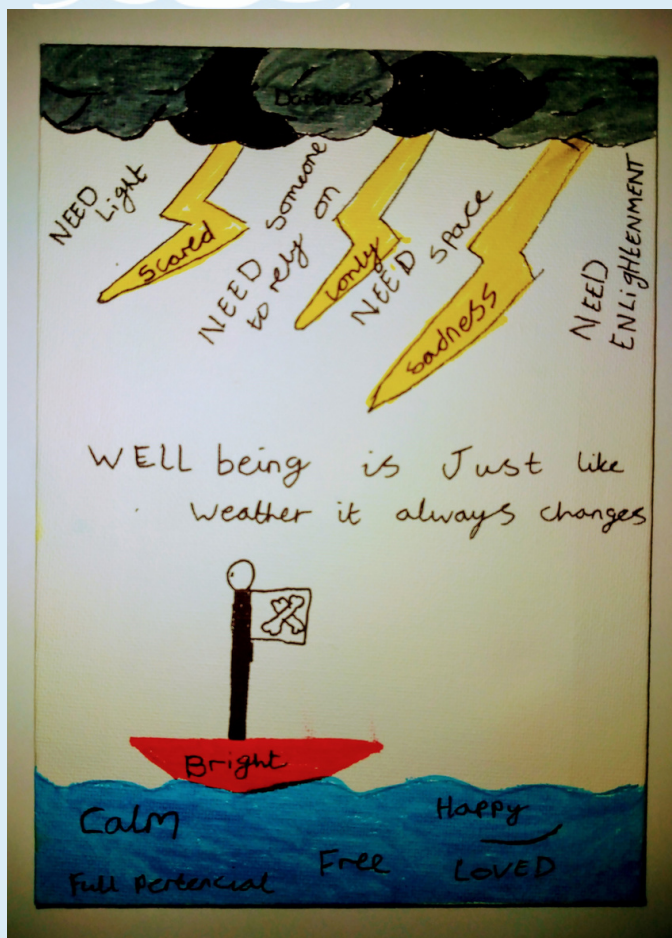 Darkness
NEED
Light
Scared
NEED Someone
to rely on
Lonly
NEED Space
Sadness
NEED
ENLIGHTEENMENT
WELL being is Just like
Weather it always changes
Bright
Calm
Happy
Free
LOVED
Full Pertencial